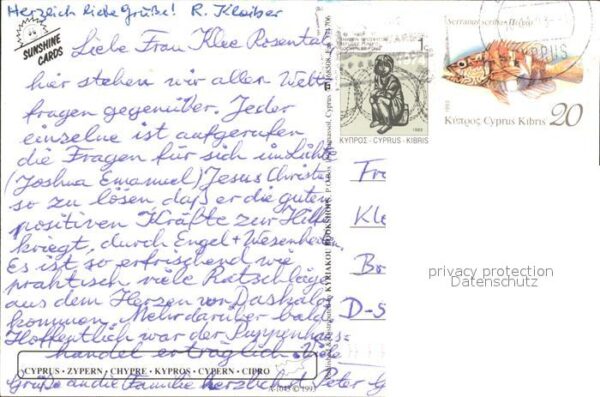 Herzlich liebe Grüße! R. Klaiber
SUNSHINE
CARDS
Liebe Frau Klee Rosental
hier stehen wir allen Welt
fragen gegenüber. Jeder
einzelne ist aufgerufen
die Fragen für sich im Lichte
(Joshua Emanuel) Jesus Christi
so zu lösen daß er die guten
positiven Kräfte zur Hilfe
kriegt, durch Engel + Wesenheiten.
Es ist so erfrischend wie
praktisch viele Ratschläge
aus dem Herzen von Daskalos
kommen. Mehr darüber bald
Hoffentlich war der Puppenhaus-
handel erträglich. Viele
Grüße an die Familie herzlichst Peter G
CYPRUS · ZYPERN · CHYPRE · KYPROS · CYPERN · CIPRO
A-1043 © 1993
KYRIAKOU BOOKSHOPS, P.O.Box Limassol, Cyprus
ΚΥΠΡΟΣ-CYPRUS-KIBRIS
CYPRUS
1993
Κύπρος Cyprus Kıbrıs 20
Fr
Kle
B
D-5
privacy protection
Datenschutz